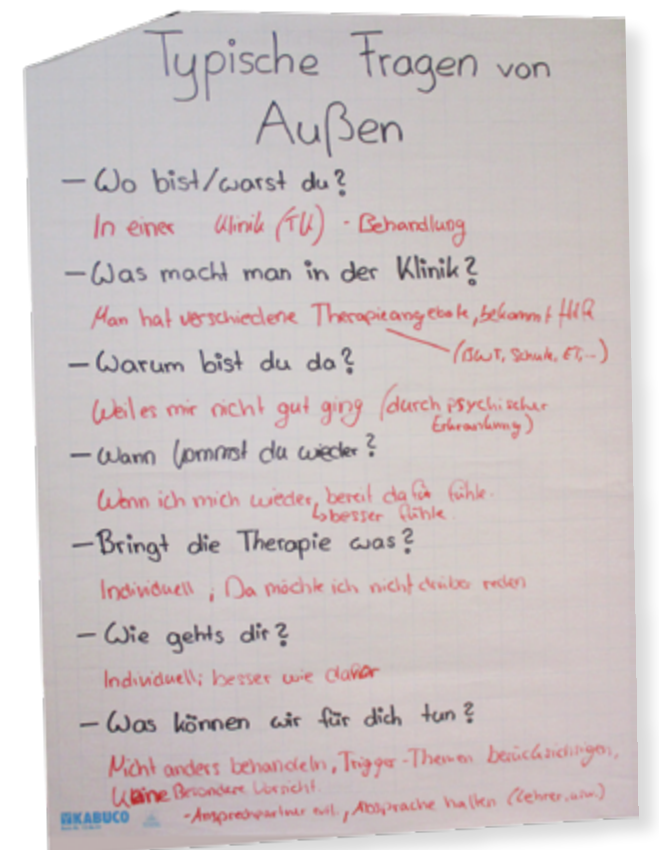 Typische Fragen von
Außen
- Wo bist/warst du?
In einer Klinik (TU) - Behandlung
- Was macht man in der Klinik?
Man hat verschiedene Therapieangebote, bekommt Hilfe
(BWT, Schule, ET,...)
- Warum bist du da?
Weil es mir nicht gut ging (durch psychischer
Erkrankung)
- Wann kommst du wieder?
Wenn ich mich wieder bereit dafür fühle.
↳ besser fühle.
- Bringt die Therapie was?
Individuell ; Da möchte ich nicht drüber reden
- Wie gehts dir?
Individuell; besser wie davor
- Was können wir für dich tun?
Nicht anders behandeln, Trigger-Themen berücksichtigen,
Keine Besondere Vorsicht.
- Ansprechpartner evtl., Absprache halten (Lehrer, usw.)
KABUCO